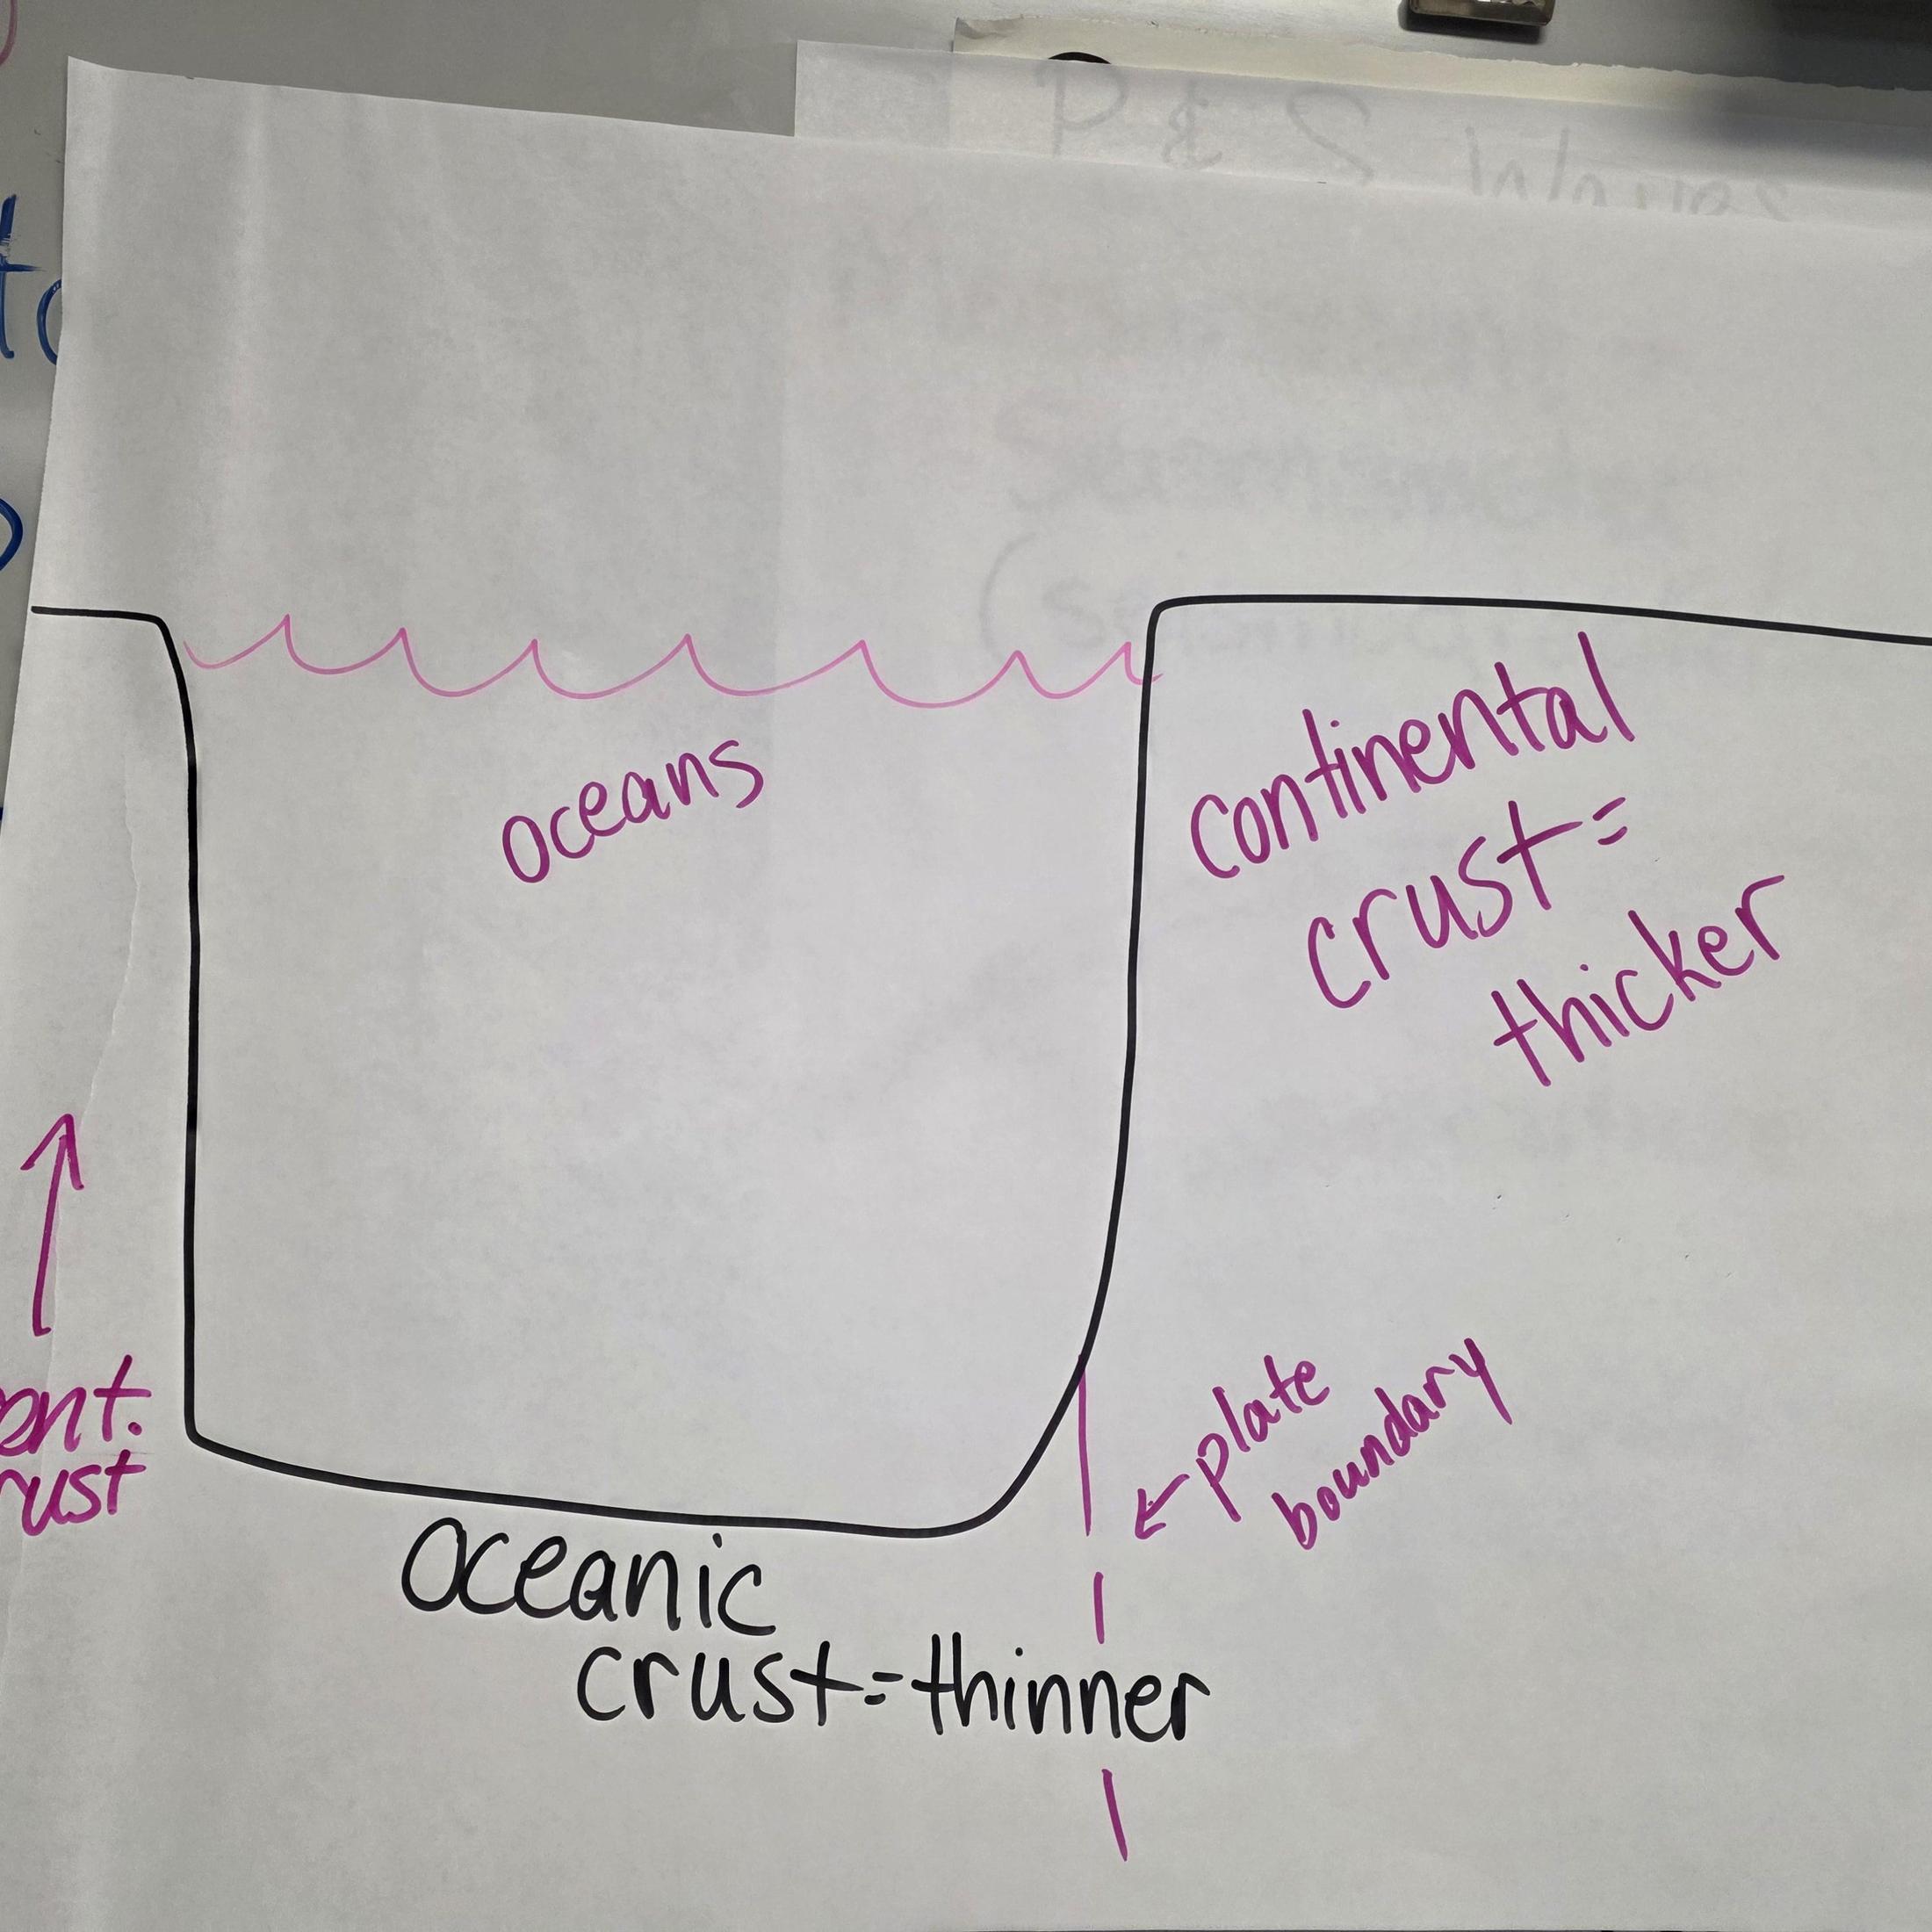 P & S
oceans
continental
crust =
thicker
ont.
rust
plate
boundary
oceanic
crust = thinner